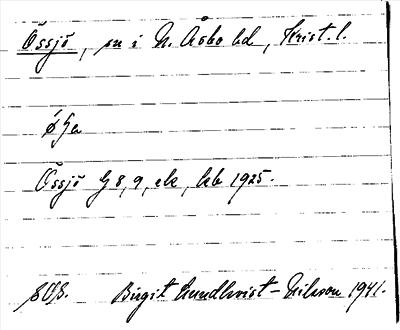 Össjö, sn i N. Åsbo hd, Krist. l.
Össjö G 8, 9, ek, kb 1925.
Birgit Lundkvist-Nilsson 1941.